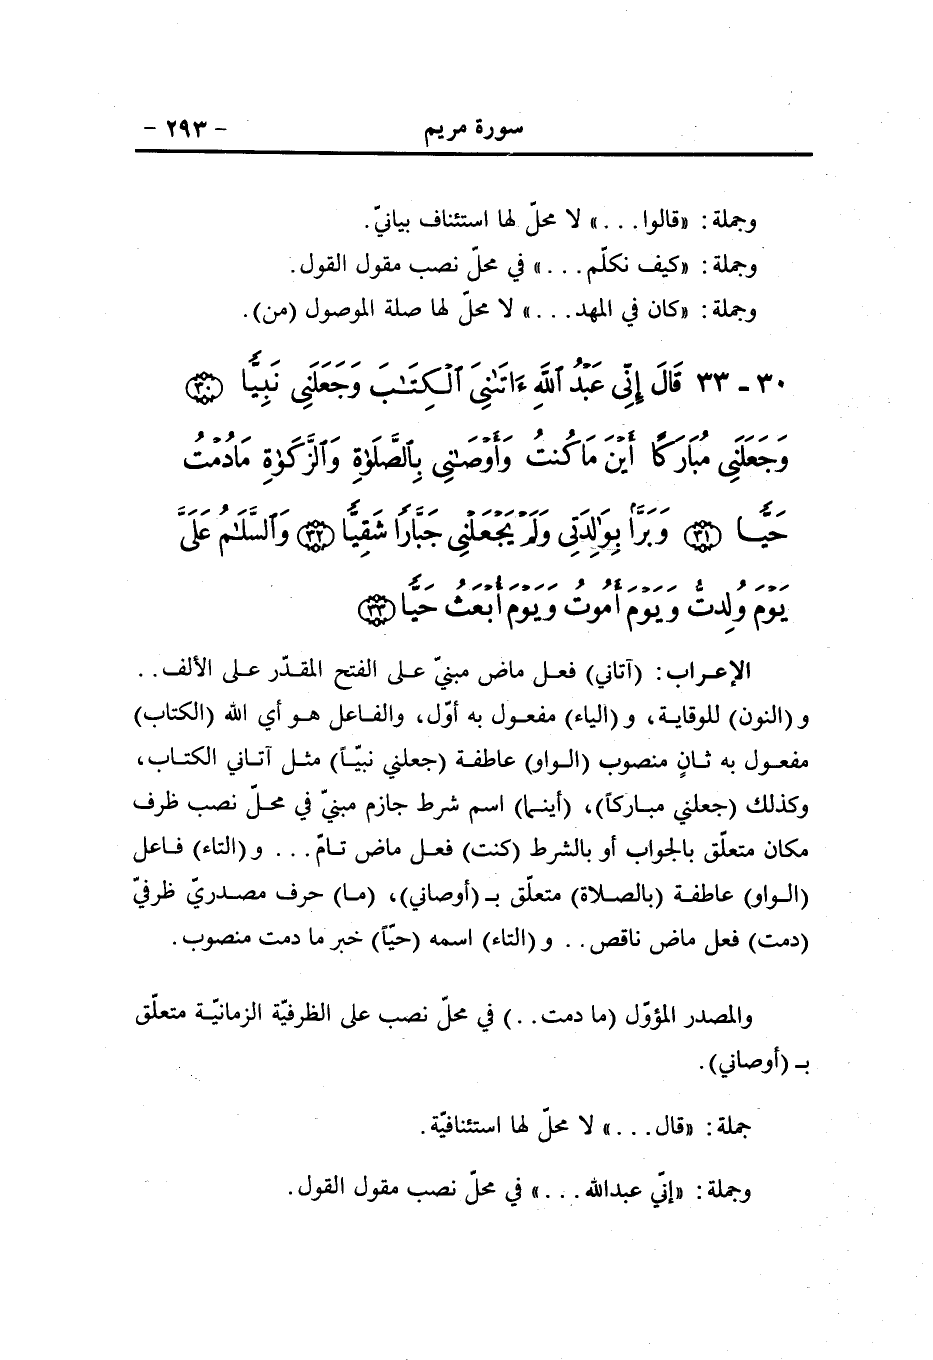 سورة مريم - ٢٩٣ -
وجملة: «قالوا...» لا محلّ لها استئناف بيانيّ.
وجملة: «كيف نكلّم...» في محلّ نصب مقول القول.
وجملة: «كان في المهد...» لا محلّ لها صلة الموصول (من).
٣٠ - ٣٣ قَالَ إِنِّي عَبْدُ ٱللَّهِ ءَاتَىٰنِيَ ٱلْكِتَٰبَ وَجَعَلَنِي نَبِيًّا ﴿٣٠﴾
وَجَعَلَنِي مُبَارَكًا أَيْنَ مَا كُنتُ وَأَوْصَٰنِي بِٱلصَّلَوٰةِ وَٱلزَّكَوٰةِ مَا دُمْتُ
حَيًّا ﴿٣١﴾ وَبَرًّا بِوَٰلِدَتِي وَلَمْ يَجْعَلْنِي جَبَّارًا شَقِيًّا ﴿٣٢﴾ وَٱلسَّلَٰمُ عَلَىَّ
يَوْمَ وُلِدتُّ وَيَوْمَ أَمُوتُ وَيَوْمَ أُبْعَثُ حَيًّا ﴿٣٣﴾
الإعراب: (آتاني) فعل ماض مبنيّ على الفتح المقدّر على الألف..
و(النون) للوقاية، و(الياء) مفعول به أوّل، والفاعل هو أي الله (الكتاب)
مفعول به ثانٍ منصوب (الواو) عاطفة (جعلني نبيّاً) مثل آتاني الكتاب،
وكذلك (جعلني مباركاً)، (أينما) اسم شرط جازم مبنيّ في محلّ نصب ظرف
مكان متعلّق بالجواب أو بالشرط (كنت) فعل ماض تامّ... و(التاء) فاعل
(الواو) عاطفة (بالصلاة) متعلّق بـ (أوصاني)، (ما) حرف مصدريّ ظرفيّ
(دمت) فعل ماض ناقص.. و(التاء) اسمه (حيّاً) خبر ما دمت منصوب.
والمصدر المؤوّل (ما دمت..) في محلّ نصب على الظرفيّة الزمانيّة متعلّق
بـ (أوصاني).
جملة: «قال...» لا محلّ لها استئنافيّة.
وجملة: «إنّي عبدالله...» في محلّ نصب مقول القول.